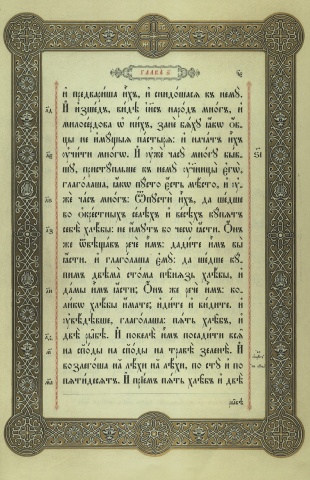 ГЛАВА ѕ҃.
и҆ предвари́ша и҆̀хъ, и҆ снидо́шасѧ къ немꙋ̀.
И҆ и҆зше́дъ, ви́дѣ і҆и҃съ наро́дъ мно́гъ, и҆
милосе́рдова ѡ҆ ни́хъ, занѐ бѧ́хꙋ ꙗ҆́кѡ ѻ҆́в-
цы не и҆мꙋ́щыѧ па́стырѧ: и҆ нача́тъ и҆̀хъ
ᲂу҆чи́ти мно́гѡ. И҆ ᲂу҆жѐ часꙋ̀ мно́гꙋ бы́в-
шꙋ, пристꙋ́пльше къ немꙋ̀ ᲂу҆чн҃цы̀ є҆гѡ̀,
глаго́лаша, ꙗ҆́кѡ пꙋ́сто є҆́сть мѣ́сто, и҆ ᲂу҆-
жѐ ча́съ мно́гъ: Ѿпꙋстѝ и҆̀хъ, да ше́дше
во ѻ҆кре́стныхъ се́лѣхъ и҆ ве́сехъ кꙋ́пѧтъ
себѣ̀ хлѣ́бы: не и҆́мꙋтъ бо чесѡ̀ ꙗ҆́сти. Ѻ҆́нъ
же ѿвѣща́въ речѐ и҆̀мъ: дади́те и҆̀мъ вы̀
ꙗ҆́сти. и҆ глаго́лаша є҆мꙋ̀: да ше́дше кꙋ́-
пимъ двѣма̀ сто́ма пѣ́нѧзь хлѣ́бы, и҆
да́мы и҆̀мъ ꙗ҆́сти; Ѻ҆́нъ же речѐ и҆̀мъ: ко-
ли́кѡ хлѣ́бы и҆́мате; и҆ди́те и҆ ви́дите. и҆
ᲂу҆вѣ́дѣвше, глаго́лаша: пѧ́ть хлѣ́бъ, и҆
двѣ̀ ры̑бѣ. И҆ повелѣ̀ и҆̀мъ посади́ти всѧ̑
на спо́ды на спо́ды на травѣ̀ зе́ленѣ. И҆
возлего́ша на лѣ́хи на лѣ́хи, по стꙋ̀ и҆ по
пѧти́десѧтъ. И҆ прїе́мъ пѧ́ть хлѣ̑бъ и҆ двѣ̀
ры̑бѣ